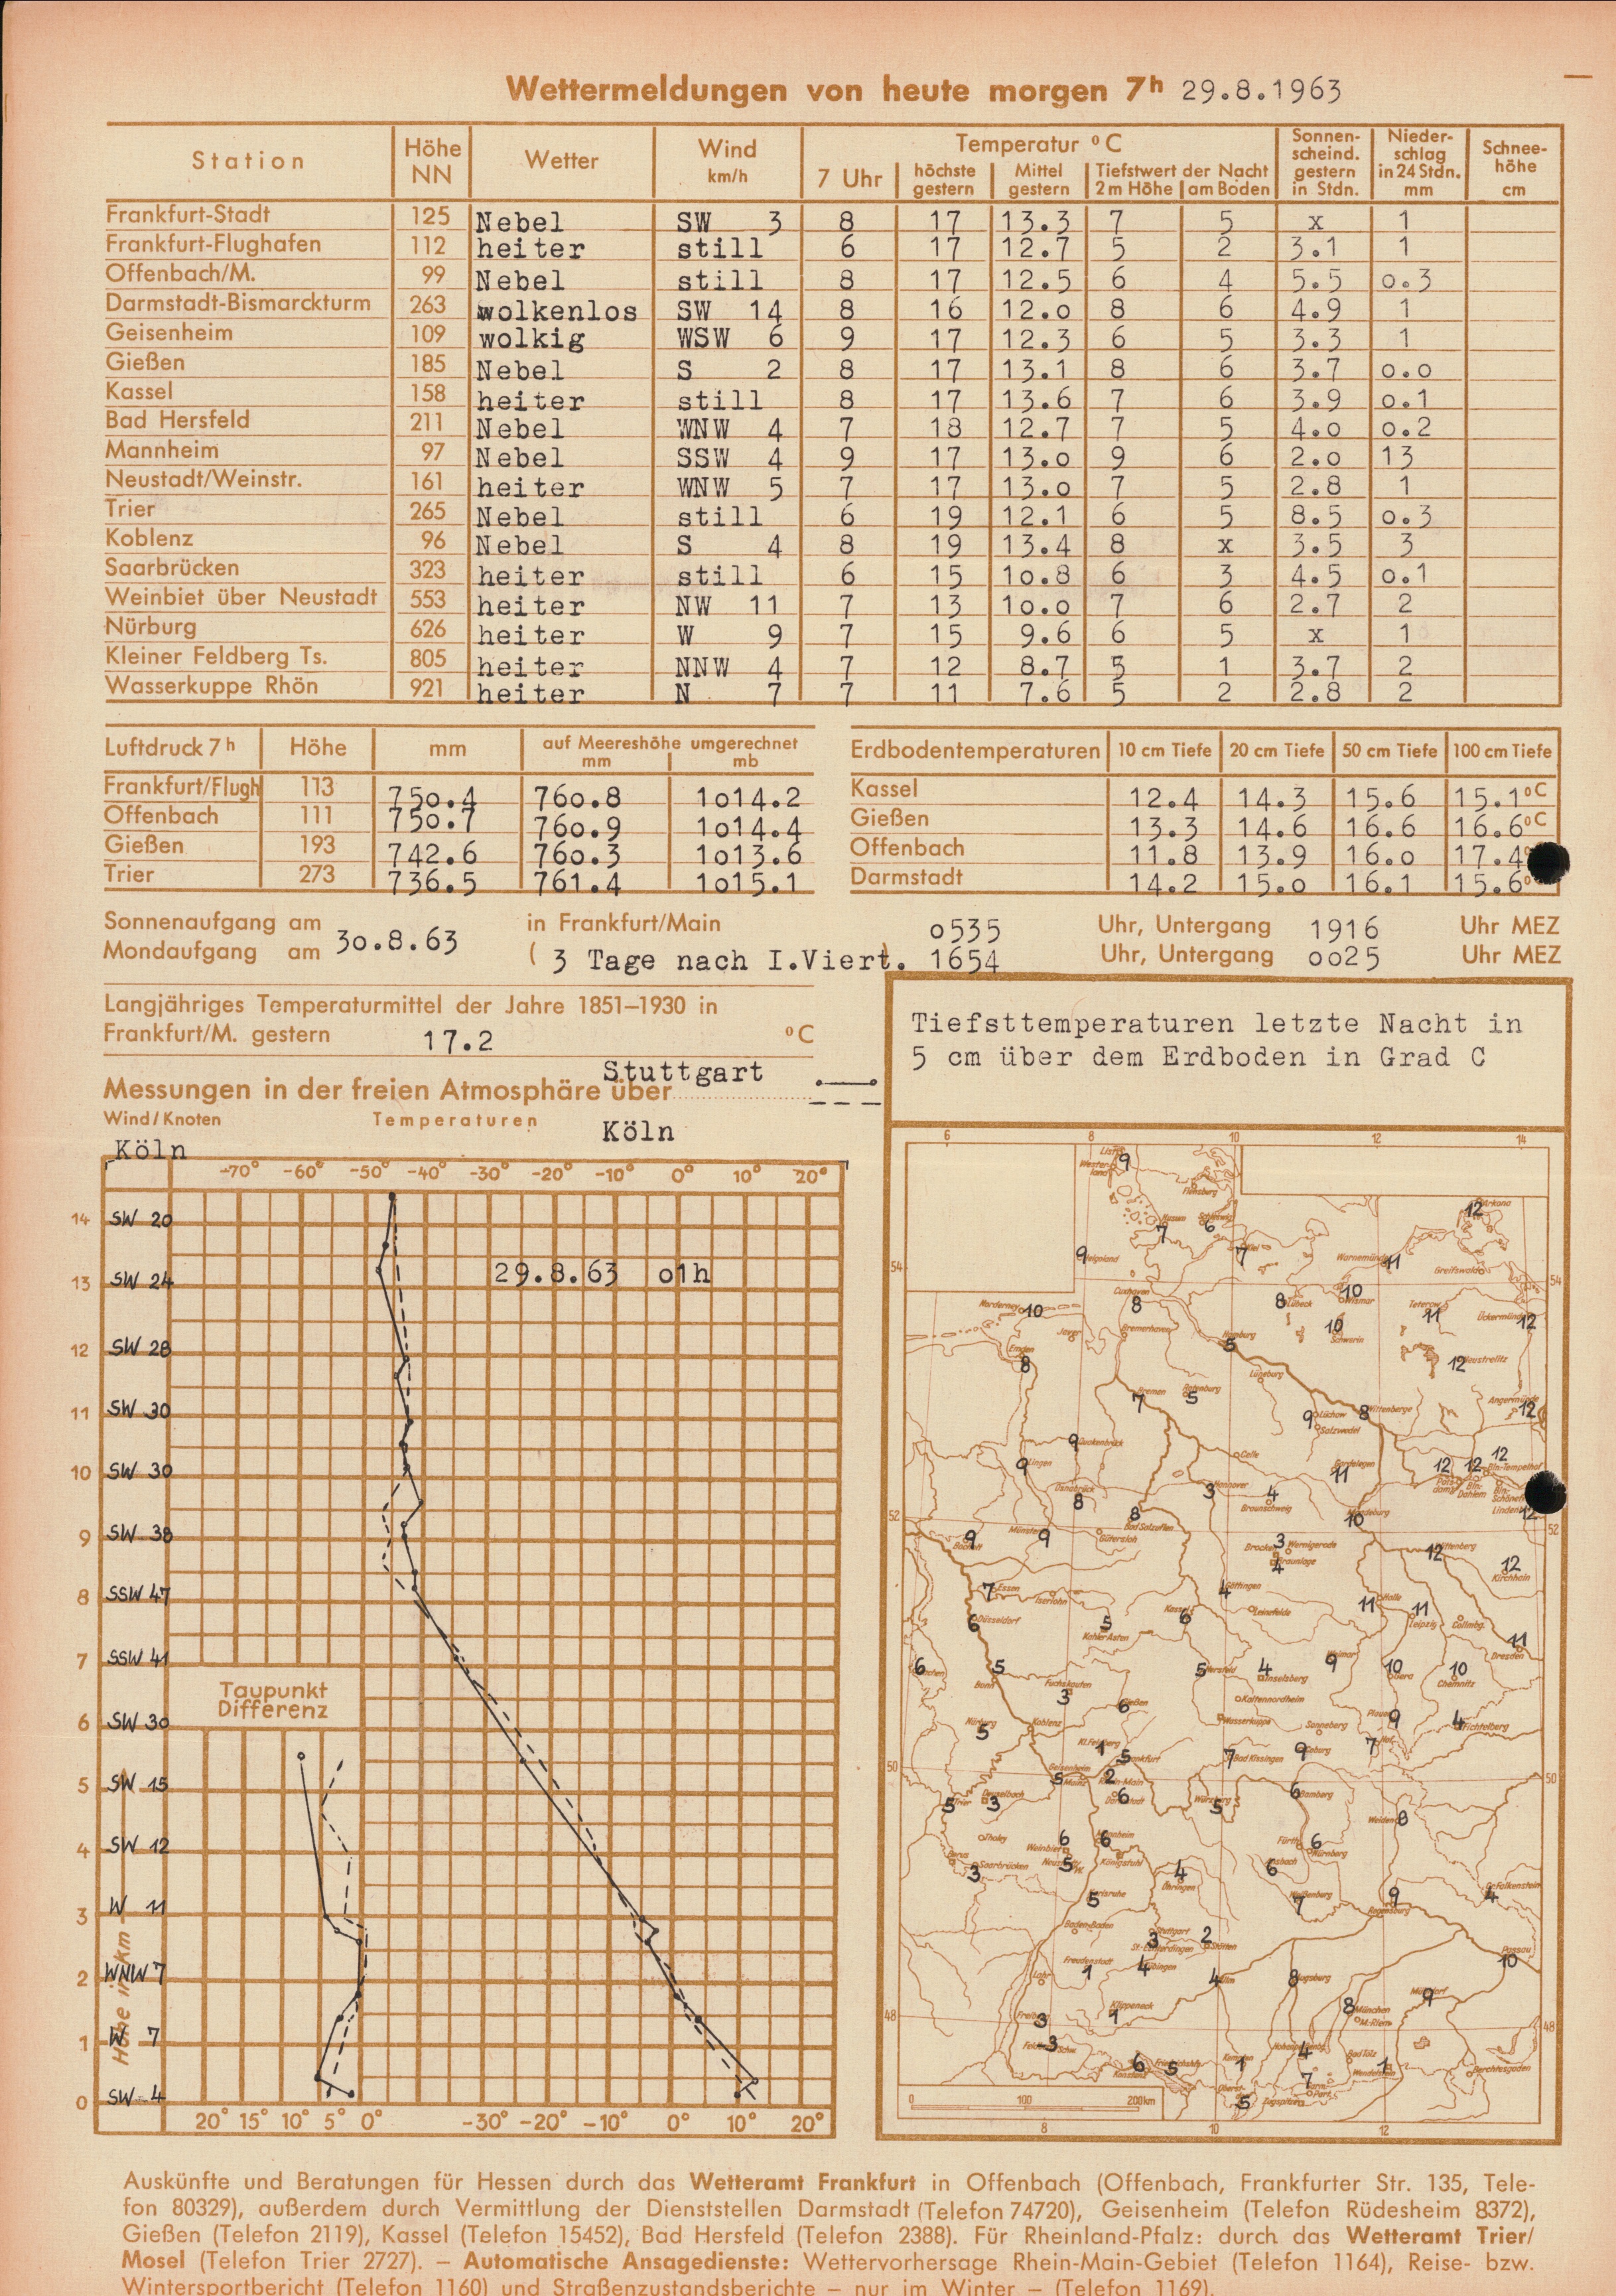 Wettermeldungen von heute morgen 7h 29.8.1963
Station Höhe NN Wetter Wind km/h Temperatur °C Sonnenscheind. gestern in Stdn. Niederschlag in 24 Stdn. mm Schneehöhe cm
7 Uhr höchste gestern Mittel gestern Tiefstwert der Nacht 2 m Höhe am Boden
Frankfurt-Stadt 125 Nebel SW 3 8 17 13.3 7 5 x 1
Frankfurt-Flughafen 112 heiter still 6 17 12.7 5 2 3.1 1
Offenbach/M. 99 Nebel still 8 17 12.5 6 4 5.5 0.3
Darmstadt-Bismarckturm 263 wolkenlos SW 14 8 16 12.0 8 6 4.9 1
Geisenheim 109 wolkig WSW 6 9 17 12.3 6 5 3.3 1
Gießen 185 Nebel S 2 8 17 13.1 8 6 3.7 0.0
Kassel 158 heiter still 8 17 13.6 7 6 3.9 0.1
Bad Hersfeld 211 Nebel WNW 4 7 18 12.7 7 5 4.0 0.2
Mannheim 97 Nebel SSW 4 9 17 13.0 9 6 2.0 13
Neustadt/Weinstr. 161 heiter WNW 5 7 17 13.0 7 5 2.8 1
Trier 265 Nebel still 6 19 12.1 6 5 8.5 0.3
Koblenz 96 Nebel S 4 8 19 13.4 8 x 3.5 3
Saarbrücken 323 heiter still 6 15 10.8 6 3 4.5 0.1
Weinbiet über Neustadt 553 heiter NW 11 7 13 10.0 7 6 2.7 2
Nürburg 626 heiter W 9 7 15 9.6 6 5 x 1
Kleiner Feldberg Ts. 805 heiter NNW 4 7 12 8.7 5 1 3.7 2
Wasserkuppe Rhön 921 heiter N 7 7 11 7.6 5 2 2.8 2
Luftdruck 7h Höhe mm auf Meereshöhe umgerechnet mm mb
Frankfurt/Flugh 113 750.4 760.8 1014.2
Offenbach 111 750.7 760.9 1014.4
Gießen 193 742.6 760.3 1013.6
Trier 273 736.5 761.4 1015.1
Erdbodentemperaturen 10 cm Tiefe 20 cm Tiefe 50 cm Tiefe 100 cm Tiefe
Kassel 12.4 14.3 15.6 15.1 °C
Gießen 13.3 14.6 16.6 16.6 °C
Offenbach 11.8 13.9 16.0 17.4
Darmstadt 14.2 15.0 16.1 15.6
Sonnenaufgang am 30.8.63 in Frankfurt/Main 0535 Uhr, Untergang 1916 Uhr MEZ
Mondaufgang am ( 3 Tage nach I.Viert. ) 1654 Uhr, Untergang 0025 Uhr MEZ
Langjähriges Temperaturmittel der Jahre 1851–1930 in
Frankfurt/M. gestern 17.2 °C
Stuttgart
Messungen in der freien Atmosphäre über
Wind/Knoten Temperaturen Köln
Köln
-70° -60° -50° -40° -30° -20° -10° 0° 10° 20°
14 SW 20
13 SW 24 29.8.63 01h
12 SW 28
11 SW 30
10 SW 30
9 SW 38
8 SSW 47
7 SSW 41
Taupunkt
Differenz
6 SW 30
5 SW 15
4 SW 12
3 W 11
2 WNW 7
1 W 7
0 SW 4
Höhe in km
20° 15° 10° 5° 0° -30° -20° -10° 0° 10° 20°
Tiefsttemperaturen letzte Nacht in
5 cm über dem Erdboden in Grad C
6 8 10 12 14
9
Flensburg
Arkona 12
7 6 7
Helgoland 9
Warnemünde 11
Greifswald
54 54
Norderney 10
Cuxhaven 8
8 Lübeck 10 Wismar
Teterow 11
Ückermünde 12
10 Schwerin
Jever Bremerhaven
Hamburg 5
Emden 8
12 Neustrelitz
Lüneburg
Bremen 7 5
Angermünde 12
9 Lüchow 8 Wittenberge
Salzwedel
9 Quakenbrück
Celle
Lingen 9
Gardelegen 11
12 12 12
Osnabrück 8
Hannover 3 4 Braunschweig
10
52 52
Bad Salzuflen 8
9 Münster 9 Gütersloh
Brocken 3 Wernigerode
4 Braunlage
12 Wittenberg
12 Kirchhain
7 Essen Iserlohn
4 Göttingen
Leinefelde
11 Halle 11 Leipzig
6 Düsseldorf
5 Kahler Asten
Kassel 6
11 Dresden
6 5 Bonn
5 4 Inselsberg 9 10 Gera 10 Chemnitz
Fuchskauten 3
Kaltennordheim
6 Gießen
Nürburg 5 Koblenz
Wasserkuppe Sonneberg
Plauen 9 4 Fichtelberg
Kl.Feldberg 1 5 Frankfurt
7 Bad Kissingen 9 Coburg 7 Hof
50 50
Geisenheim 5 2
6 Darmstadt
5 Trier 3
Würzburg 5
6 Bamberg
Weiden 8
Weinbiet 6 6 Mannheim
5 Königstuhl
Fürth 6 Nürnberg
Saarbrücken 3
4 Öhringen
Ansbach 6
5 Karlsruhe
7 9 Regensburg
4 Gr.Falkenstein
Baden-Baden
Stuttgart 3 2
Passau 10
Freudenstadt 1 4 Tübingen
Lahr
4 Ulm 8 Augsburg
9
48 48
Freiburg 3
Klippeneck 1
8 München
M.-Riem
3
6 Konstanz 5 Friedrichshafen
Kempten 1
4 Bad Tölz
Wendelstein 1
Berchtesgaden
7
5 Zugspitze
0 100 200km
8 10 12
Auskünfte und Beratungen für Hessen durch das Wetteramt Frankfurt in Offenbach (Offenbach, Frankfurter Str. 135, Tele-
fon 80329), außerdem durch Vermittlung der Dienststellen Darmstadt (Telefon 74720), Geisenheim (Telefon Rüdesheim 8372),
Gießen (Telefon 2119), Kassel (Telefon 15452), Bad Hersfeld (Telefon 2388). Für Rheinland-Pfalz: durch das Wetteramt Trier/
Mosel (Telefon Trier 2727). – Automatische Ansagedienste: Wettervorhersage Rhein-Main-Gebiet (Telefon 1164), Reise- bzw.
Wintersportbericht (Telefon 1160) und Straßenzustandsberichte – nur im Winter – (Telefon 1169).